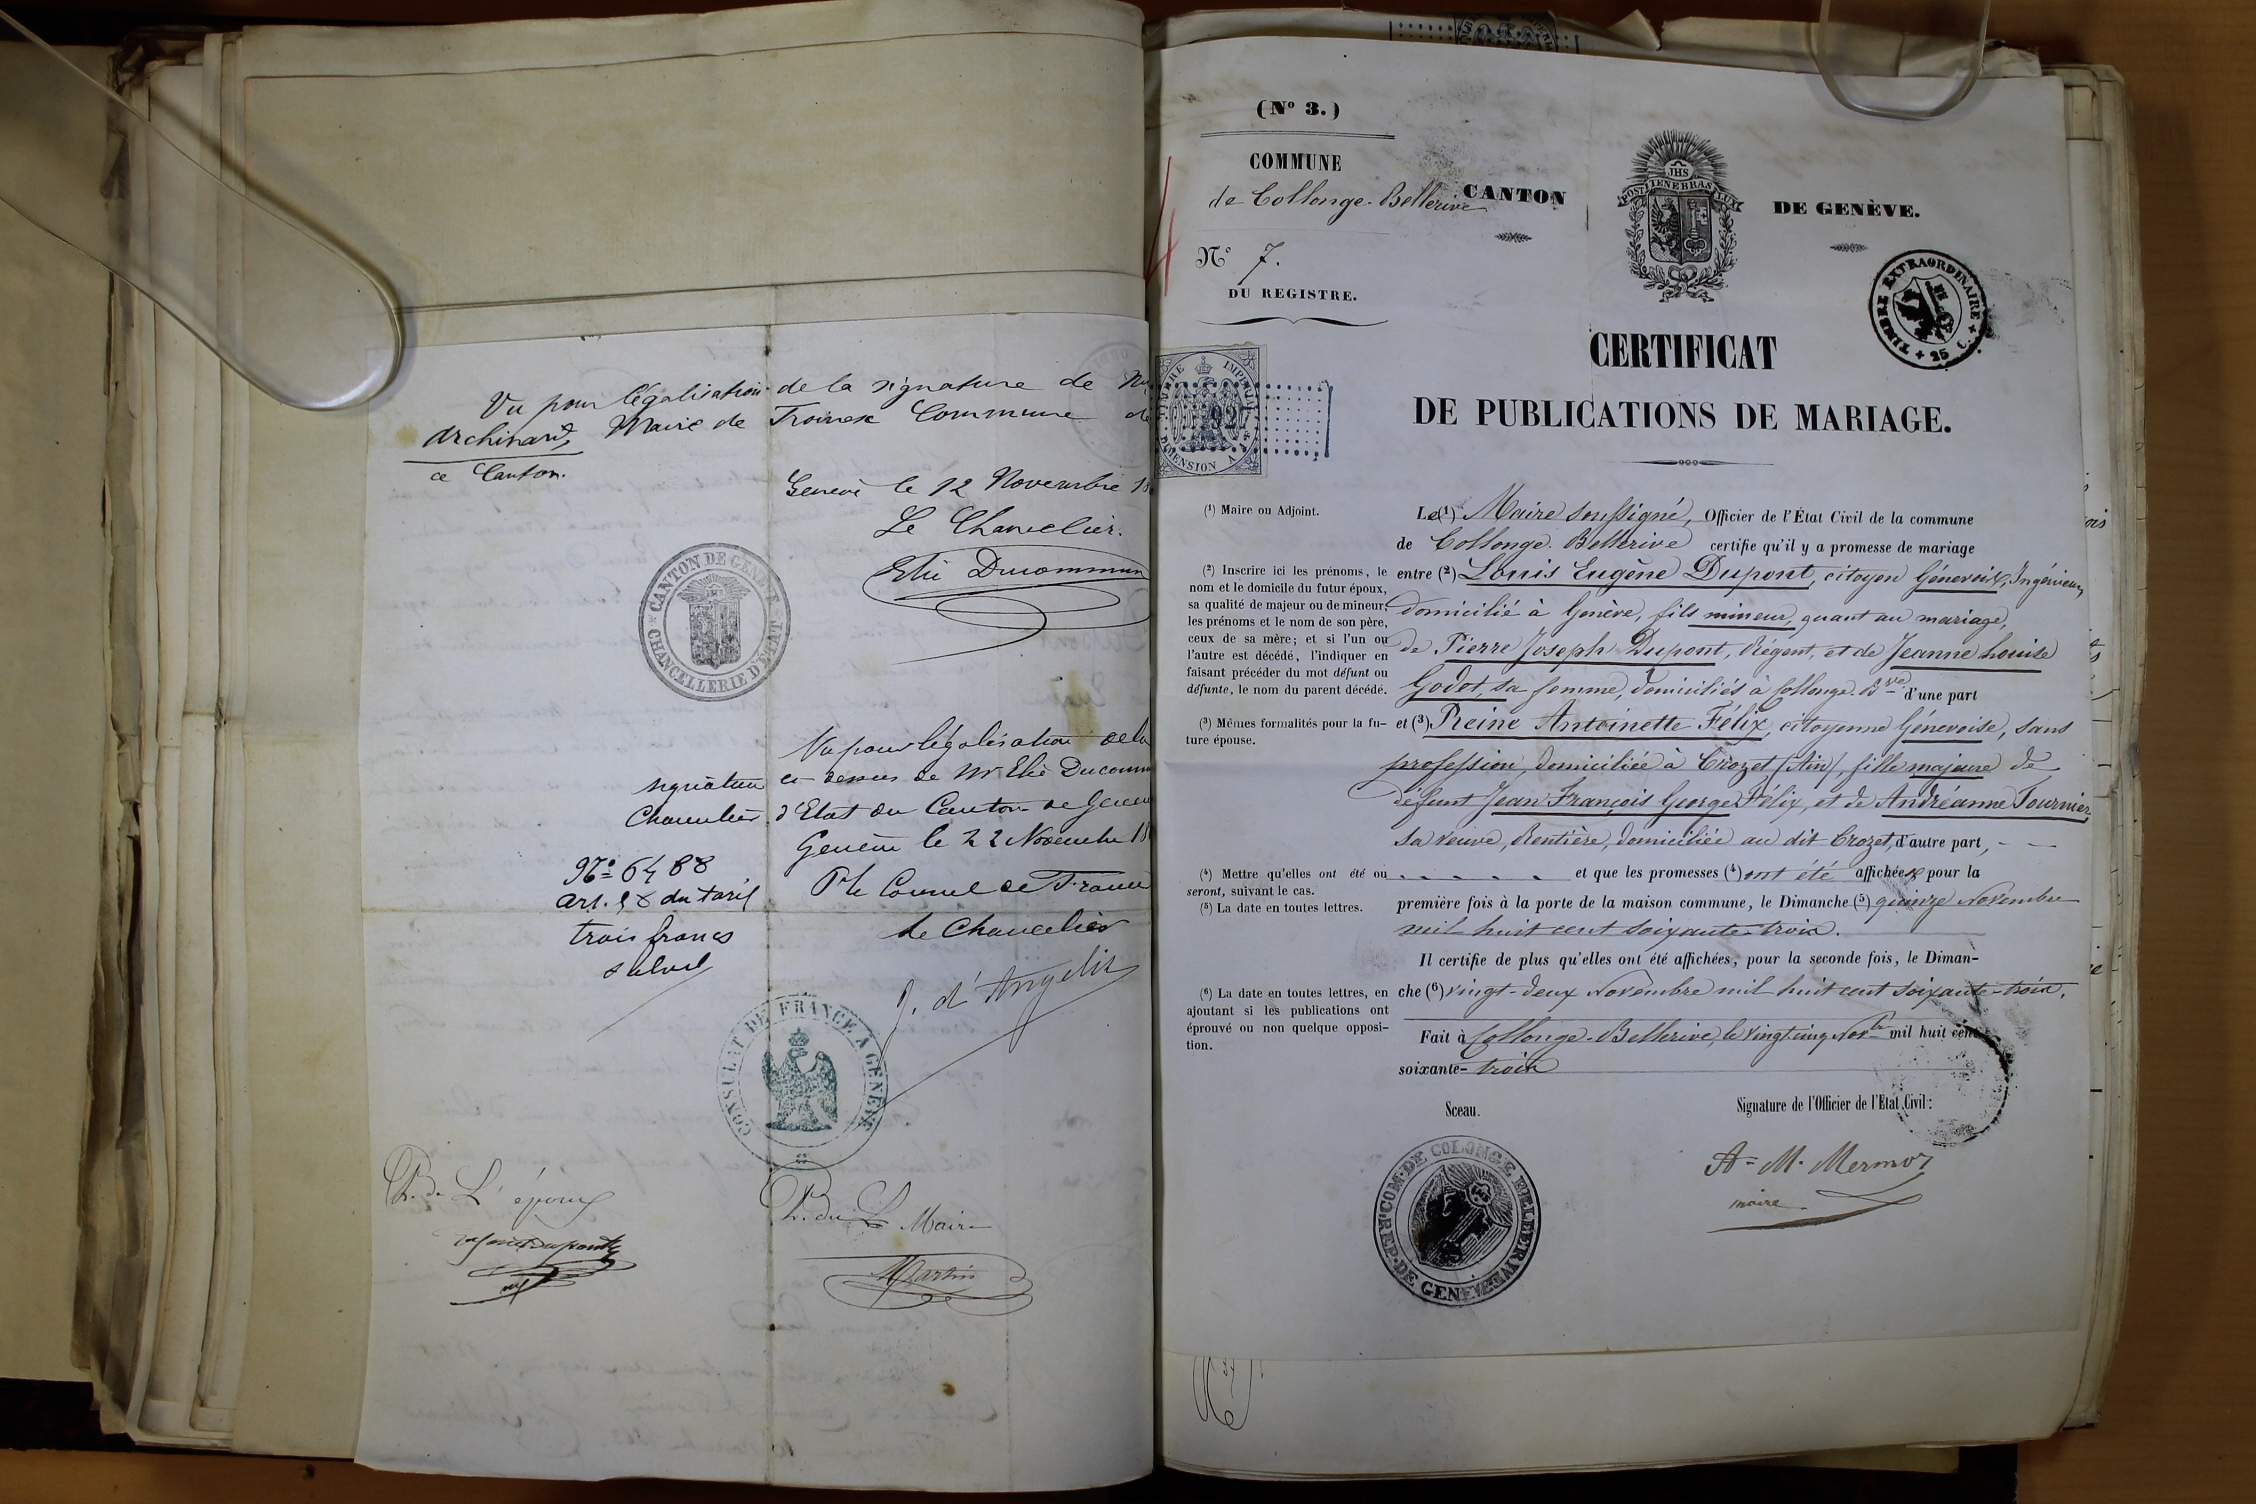 Vu pour légalisation de la signature de Mr
Archinard, Maire de Troinex Commune de
ce Canton.
Genève le 12 Novembre 18
Le Chancelier.
Elie Ducommun
CANTON DE GENÈVE
CHANCELLERIE D'ÉTAT
Vu pour légalisation de la
signature ci-dessus de Mr Elie Ducommun
Chancelier d'Etat du Canton de Genève
Genève le 22 Novembre 18
No 6488
art. du tarif
trois francs
Pr le Consul de France
Le Chancelier
J. d'Angelis
CONSULAT DE FRANCE A GENÈVE
L'époux
Maire
Martin
(No 3.)
COMMUNE
de Collonge-Bellerive
No 7.
DU REGISTRE.
CANTON DE GENÈVE.
JHS
POST TENEBRAS LUX
TIMBRE EXTRAORDINAIRE
25 C.
TIMBRE IMPERIAL
927
DIMENSION
CERTIFICAT
DE PUBLICATIONS DE MARIAGE.
(1) Maire ou Adjoint.
(2) Inscrire ici les prénoms, le
nom et le domicile du futur époux,
sa qualité de majeur ou de mineur;
les prénoms et le nom de son père,
ceux de sa mère; et si l'un ou
l'autre est décédé, l'indiquer en
faisant précéder du mot défunt ou
défunte, le nom du parent décédé.
(3) Mêmes formalités pour la fu-
ture épouse.
(4) Mettre qu'elles ont été ou
seront, suivant le cas.
(5) La date en toutes lettres.
(6) La date en toutes lettres, en
ajoutant si les publications ont
éprouvé ou non quelque opposi-
tion.
Le (1) Maire soussigné, Officier de l'État Civil de la commune
de Collonge-Bellerive certifie qu'il y a promesse de mariage
entre (2) Louis Eugène Dupont, citoyen Génevois, Ingénieur,
domicilié à Genève, fils mineur, quant au mariage,
de Pierre Joseph Dupont, Régent, et de Jeanne Louise
Godet, sa femme, domiciliés à Collonge-Bve d'une part
et (3) Reine Antoinette Félix, citoyenne Génevoise, sans
profession, domiciliée à Crozet (Ain), fille majeure de
défunt Jean François George Félix, et de Andréanne Tournier
sa veuve, Rentière, domiciliée au dit Crozet, d'autre part,
et que les promesses (4) ont été affichées pour la
première fois à la porte de la maison commune, le Dimanche (5) quinze Novembre
mil huit cent soixante-trois.
Il certifie de plus qu'elles ont été affichées, pour la seconde fois, le Diman-
che (6) vingt-deux Novembre mil huit cent soixante-trois.
Fait à Collonge-Bellerive, le vingt cinq Novbre mil huit cent
soixante-trois
Sceau.
Signature de l'Officier de l'État Civil:
A. M. Mermoz
maire
COM. DE COLONGE BELLERIVE
REP. DE GENEVE